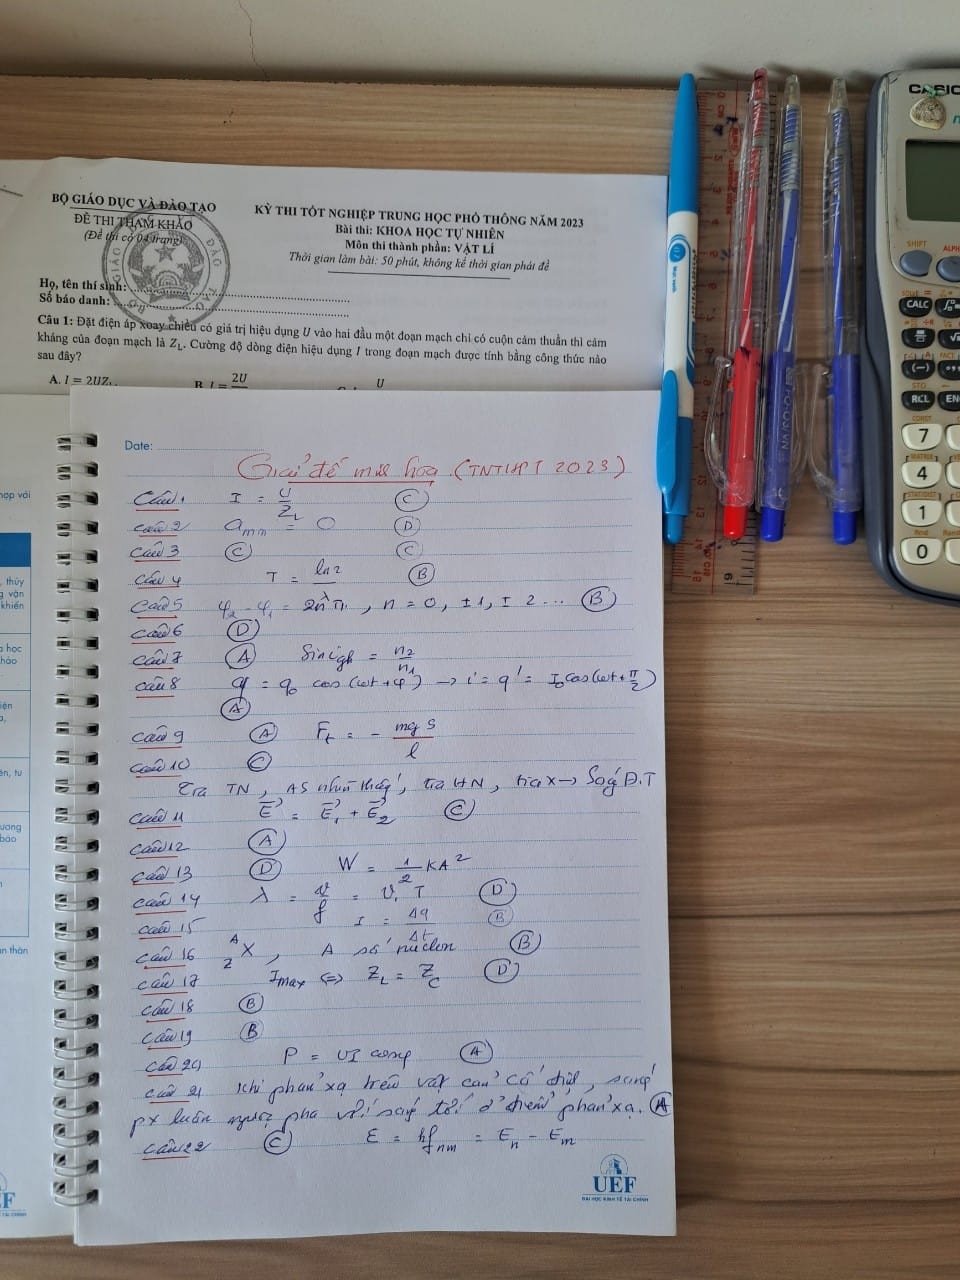 BỘ GIÁO DỤC VÀ ĐÀO TẠO
ĐỀ THI THAM KHẢO
(Đề thi có 04 trang)
KỲ THI TỐT NGHIỆP TRUNG HỌC PHỔ THÔNG NĂM 2023
Bài thi: KHOA HỌC TỰ NHIÊN
Môn thi thành phần: VẬT LÍ
Thời gian làm bài: 50 phút, không kể thời gian phát đề
Họ, tên thí sinh:
Số báo danh:
Câu 1: Đặt điện áp xoay chiều có giá trị hiệu dụng U vào hai đầu một đoạn mạch chỉ có cuộn cảm thuần thì cảm
kháng của đoạn mạch là Z_L. Cường độ dòng điện hiệu dụng I trong đoạn mạch được tính bằng công thức nào
sau đây?
A. I = 2UZ_L. B. I = 2U U
Date:
Giải đề minh họa (TNTHPT 2023)
Câu 1 I = U/Z_L C
Câu 2 a_mn = 0 D
Câu 3 C C
Câu 4 T = ln2 B
Câu 5 φ₂ - φ₁ = 2nπ, n = 0, ±1, ±2... B
Câu 6 D
Câu 7 A Sin i_gh = n₂/n₁
Câu 8 q = q₀ cos(ωt+φ) → i = q' = I₀cos(ωt+π/2)
A
Câu 9 A F_t = - mgs/l
Câu 10 C
Tia TN, AS nhìn thấy, tia HN, tia X → Sóng Đ.T
Câu 11 E = E₁ + E₂ C
Câu 12 A
Câu 13 D W = 1/2 KA²
Câu 14 λ = v/f = v.T D
Câu 15 I = Δq/Δt B
Câu 16 ᴬ_Z X, A số nuclon B
Câu 17 I_max ⇔ Z_L = Z_C D
Câu 18 B
Câu 19 B
Câu 20 P = UI cosφ A
Câu 21 Khi phản xạ trên vật cản cố định, sóng
px luôn ngược pha với sóng tới ở điểm phản xạ. A
Câu 22 C E = hf_nm = E_n - E_m
UEF
ĐẠI HỌC KINH TẾ TÀI CHÍNH
CASIO
SHIFT
ALPH
CALC
STO
RCL
EN
CONST
7
MATRIX
4
1
0
hợp với
, thủy
g vận
khiến
a học
hảo
iện
a,
ên, tư
ương
bảo
n thân
UEF